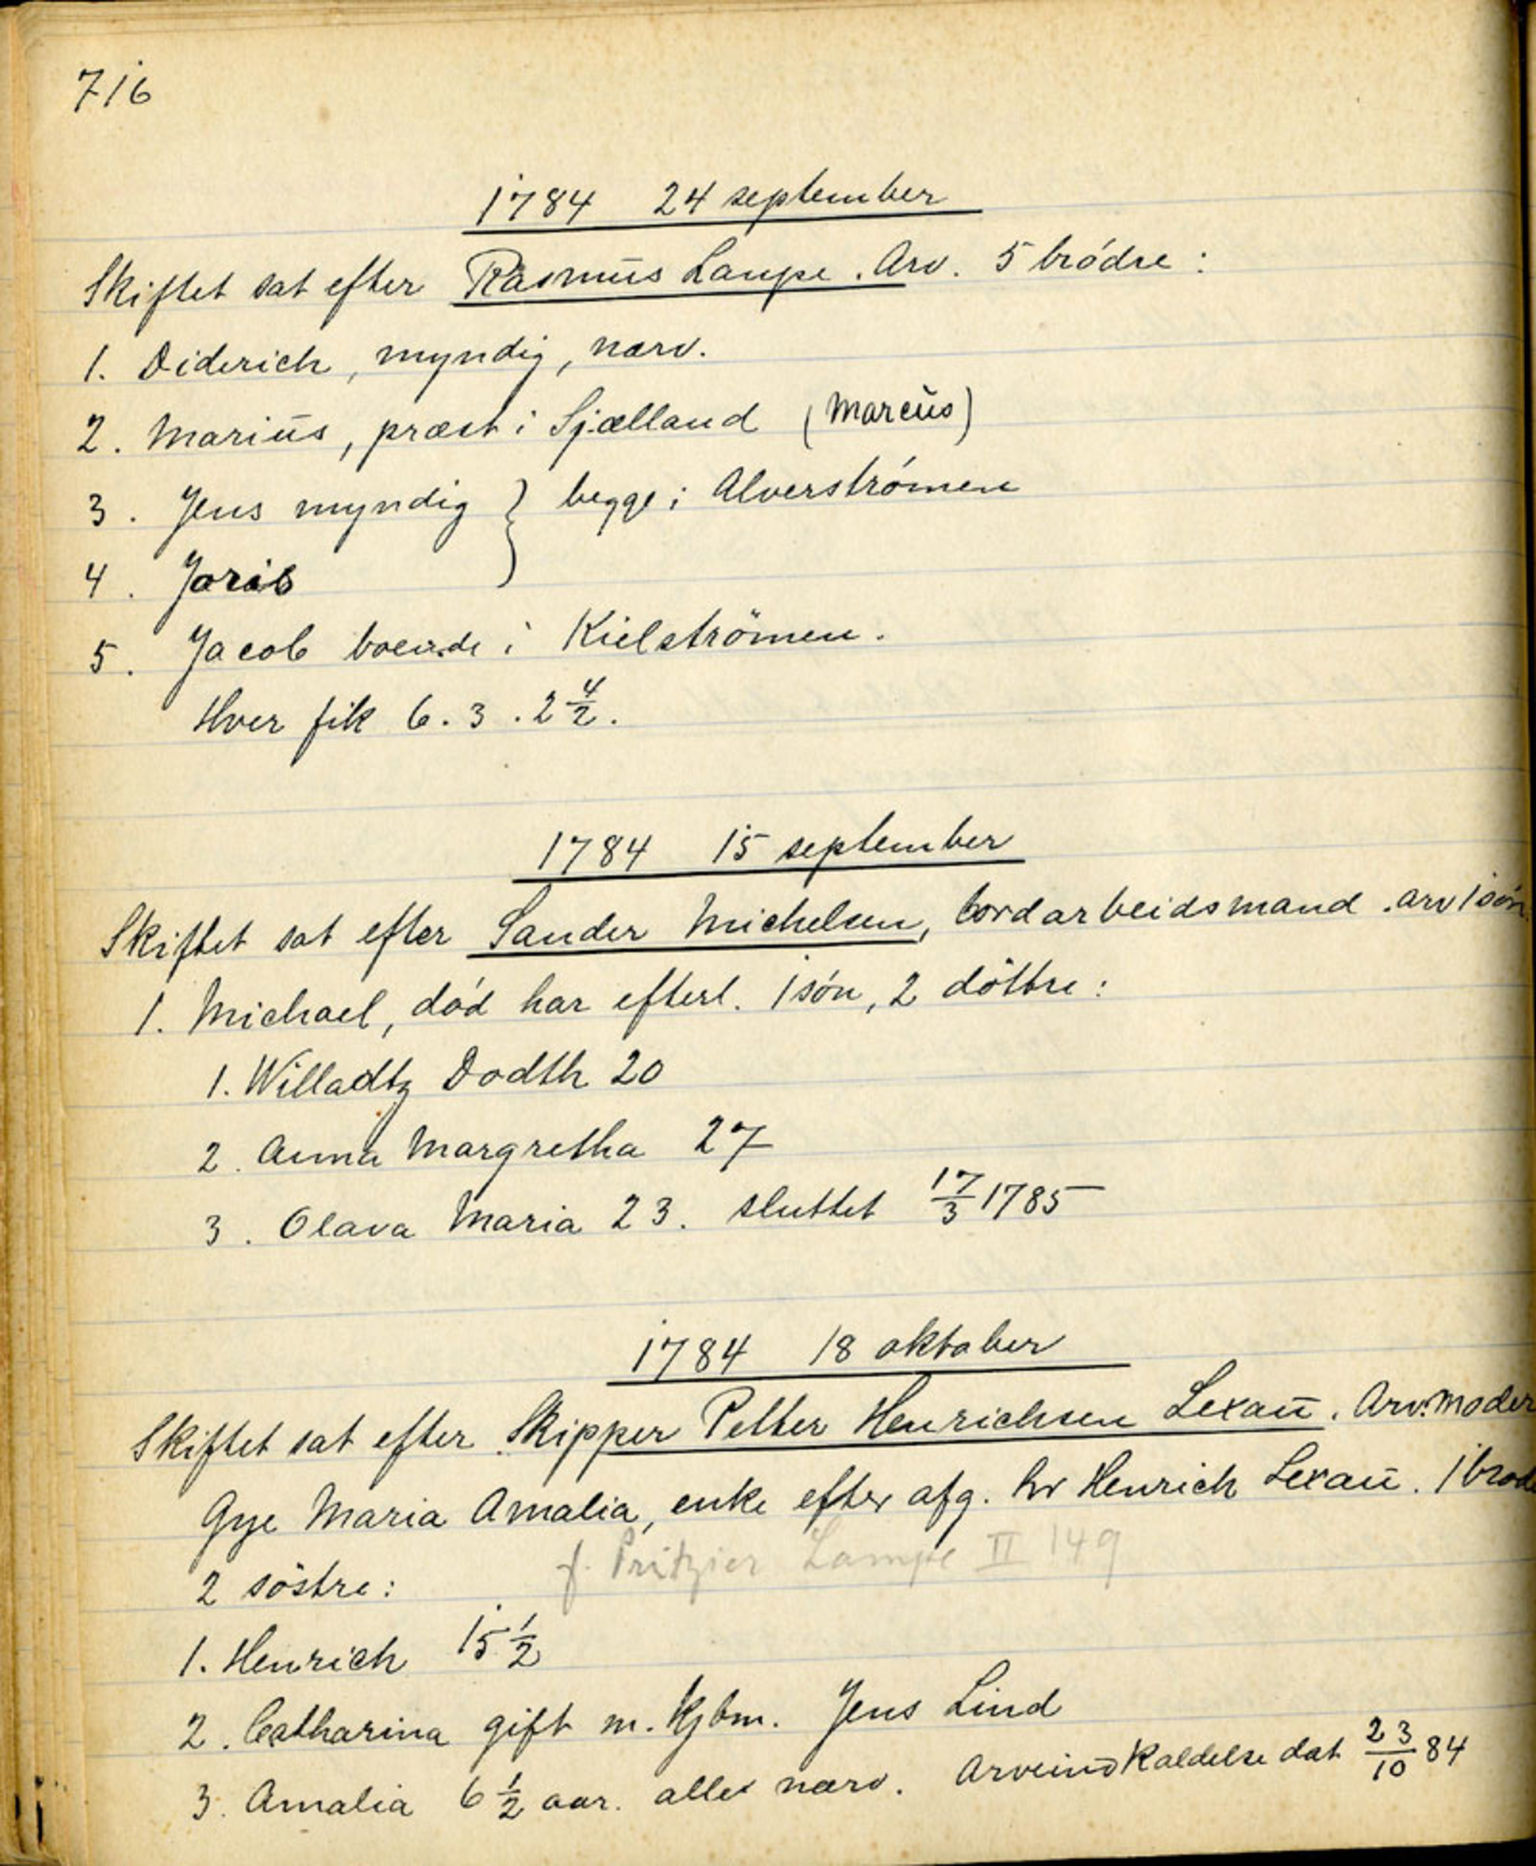 716
1784 24 september
Skiftet sat efter Rasmus Lampe. Arv. 5 brödre:
1. Diderich, myndig, nærv.
2. Marius, præst i Sjælland (Marcus)
3. Jens myndig } begge i Alverströmen
4. Joris
5. Jacob boende i Kielströmen.
Hver fik 6.3.2 4/2.
1784 15 september
Skiftet sat efter Sander Michelsen, bordarbeidsmand. arv 1 sön
1. Michael, död har efterl. 1 sön, 2 döttre:
1. Willadtz Dodth 20
2. Anna Margretha 27
3. Olava Maria 23. sluttet 17/3 1785
1784 18 oktober
Skiftet sat efter Skipper Petter Henrichsen Lexau. Arv. Moder
Gye Maria Amalia, enke efter afg. hr Henrich Lexau. 1 brode
2 söstre: f. Pritzier Lampe II 149
1. Henrich 15 1/2
2. Catharina gift m. Kjbm. Jens Lind
3. Amalia 6 1/2 aar. alle nærv. Arveindkaldelse dat 23/10 84